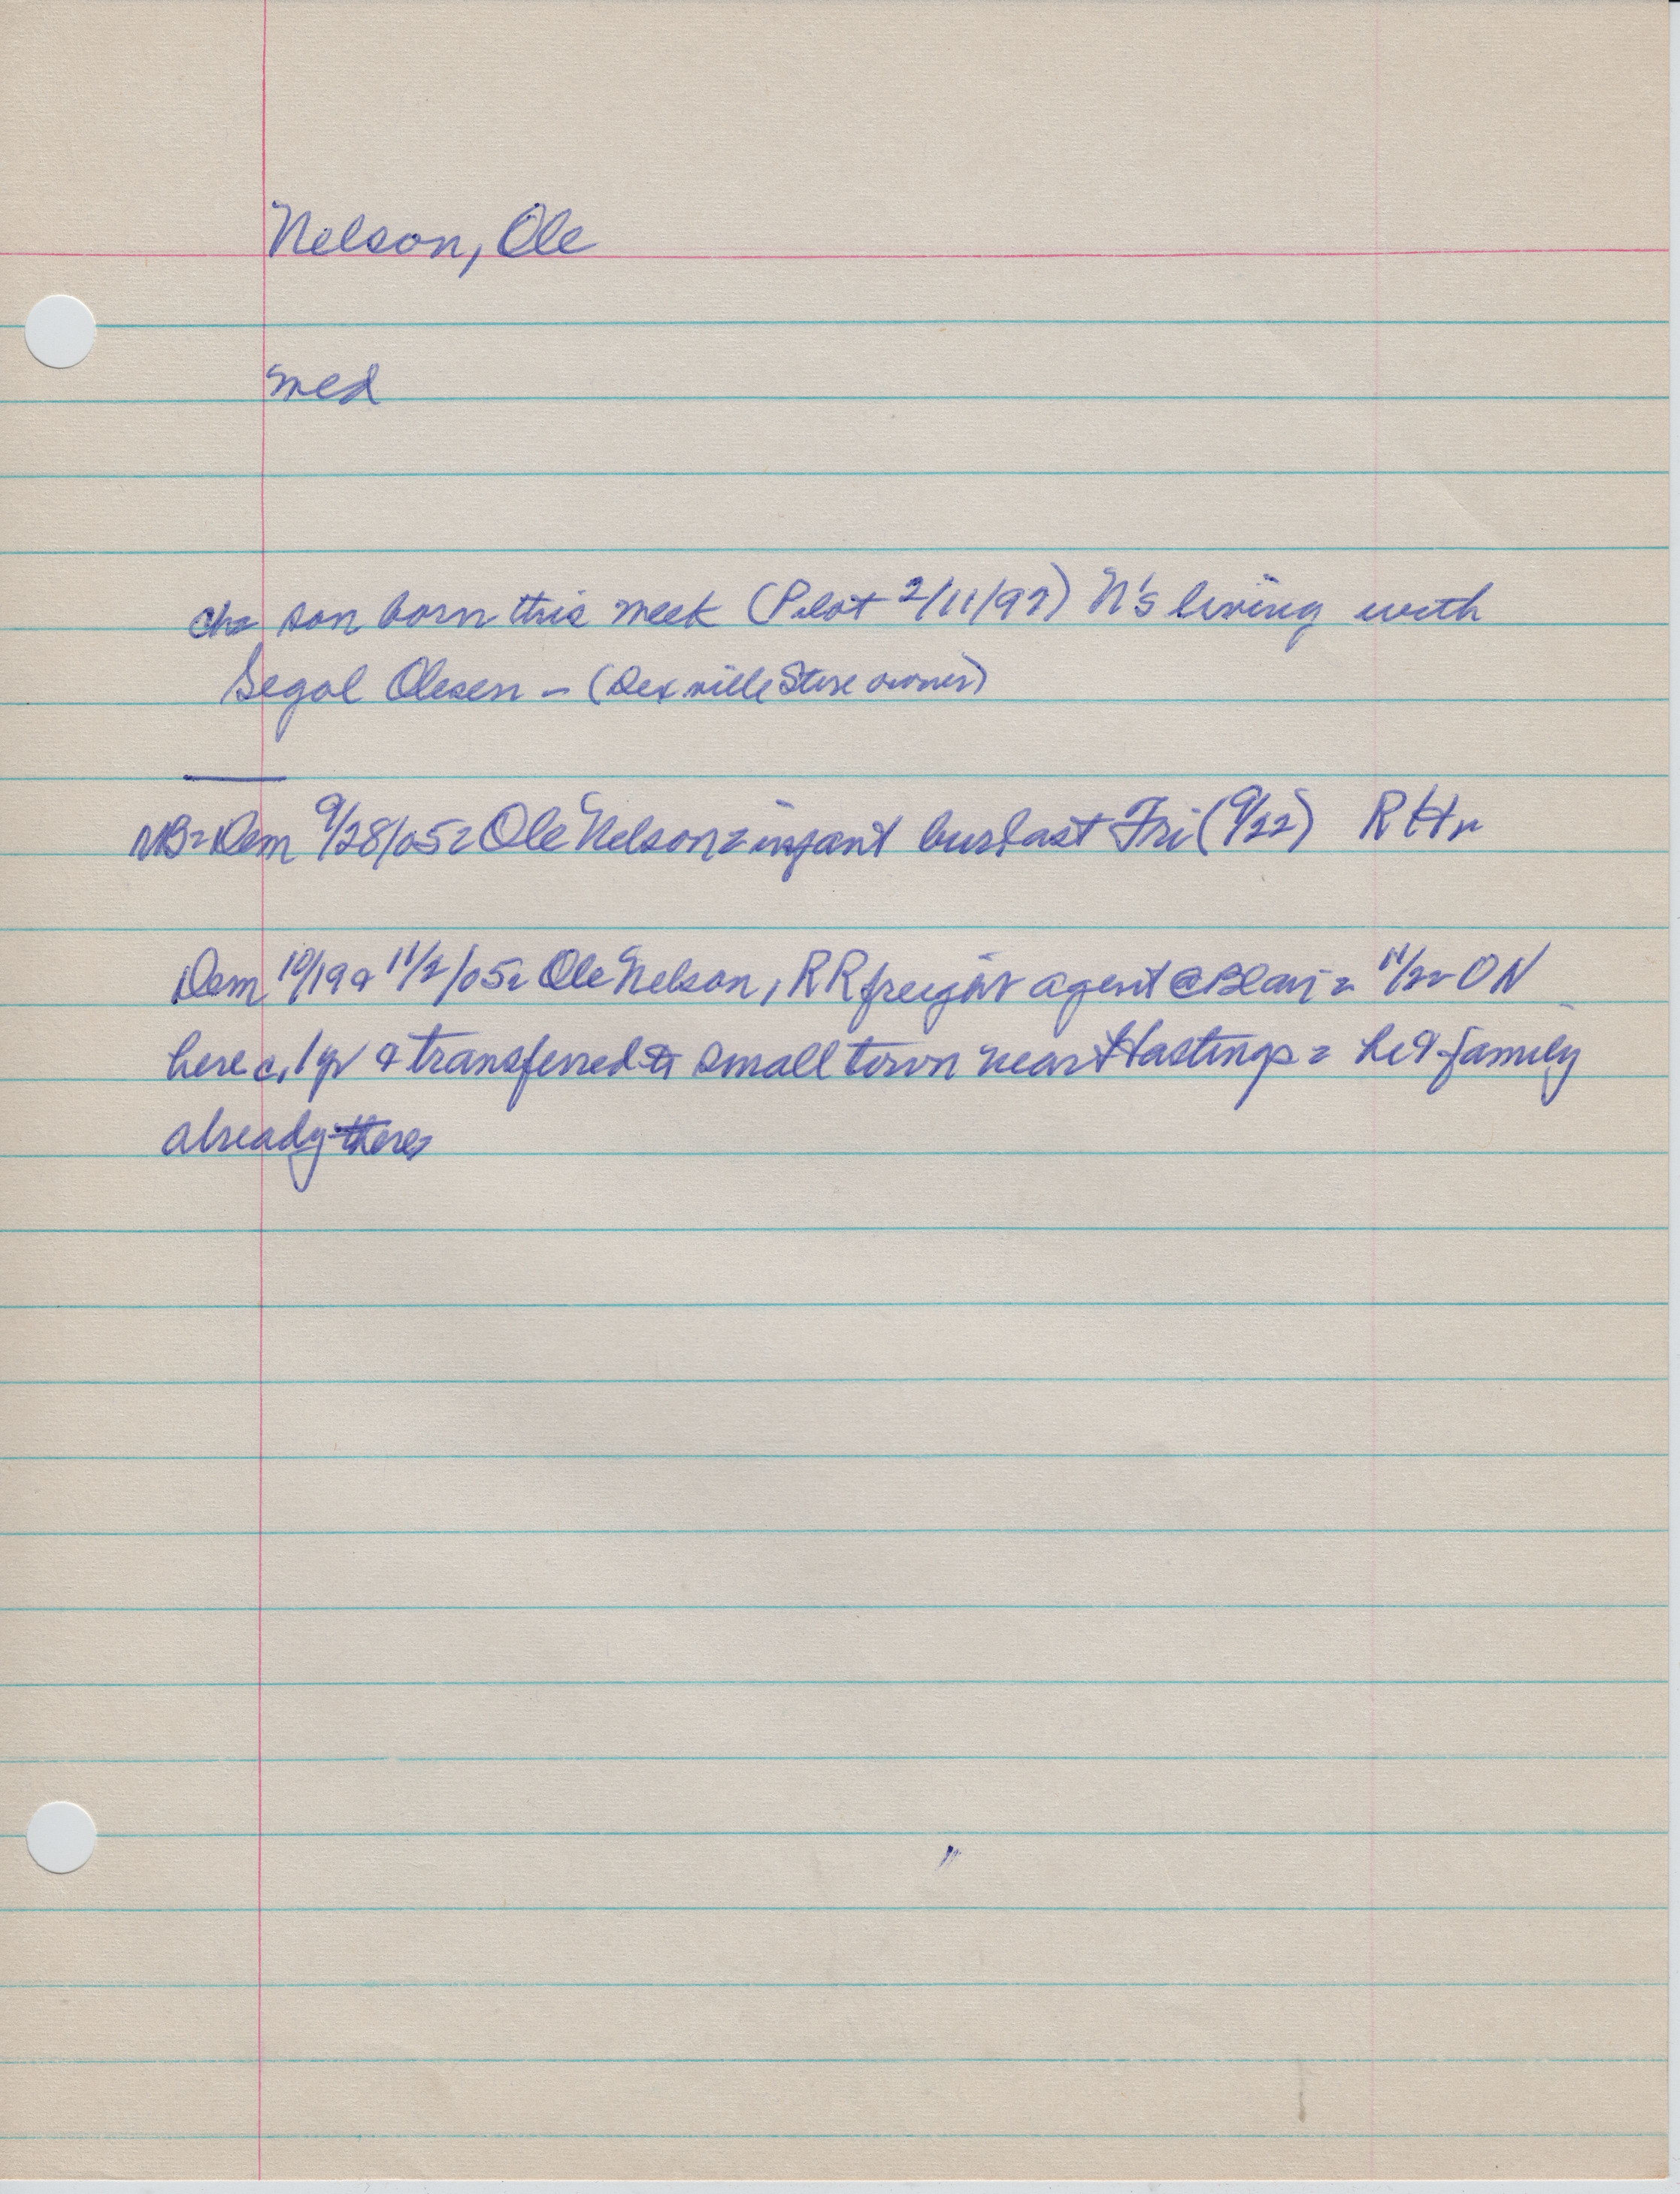 Nelson, Ole
med
ch= son born this week (Pilot 2/11/97) N's living with
Segol Olesen – (Dexville Store owner)
NB= Dem 9/28/05= Ole Nelson= infant bur last Fri (9/22) R Hr
Dem 10/19 & 11/2/05= Ole Nelson, RR freight agent @ Blair = 11/2= ON
here c. 1 yr & transferred to small town near Hastings = he & family
already there